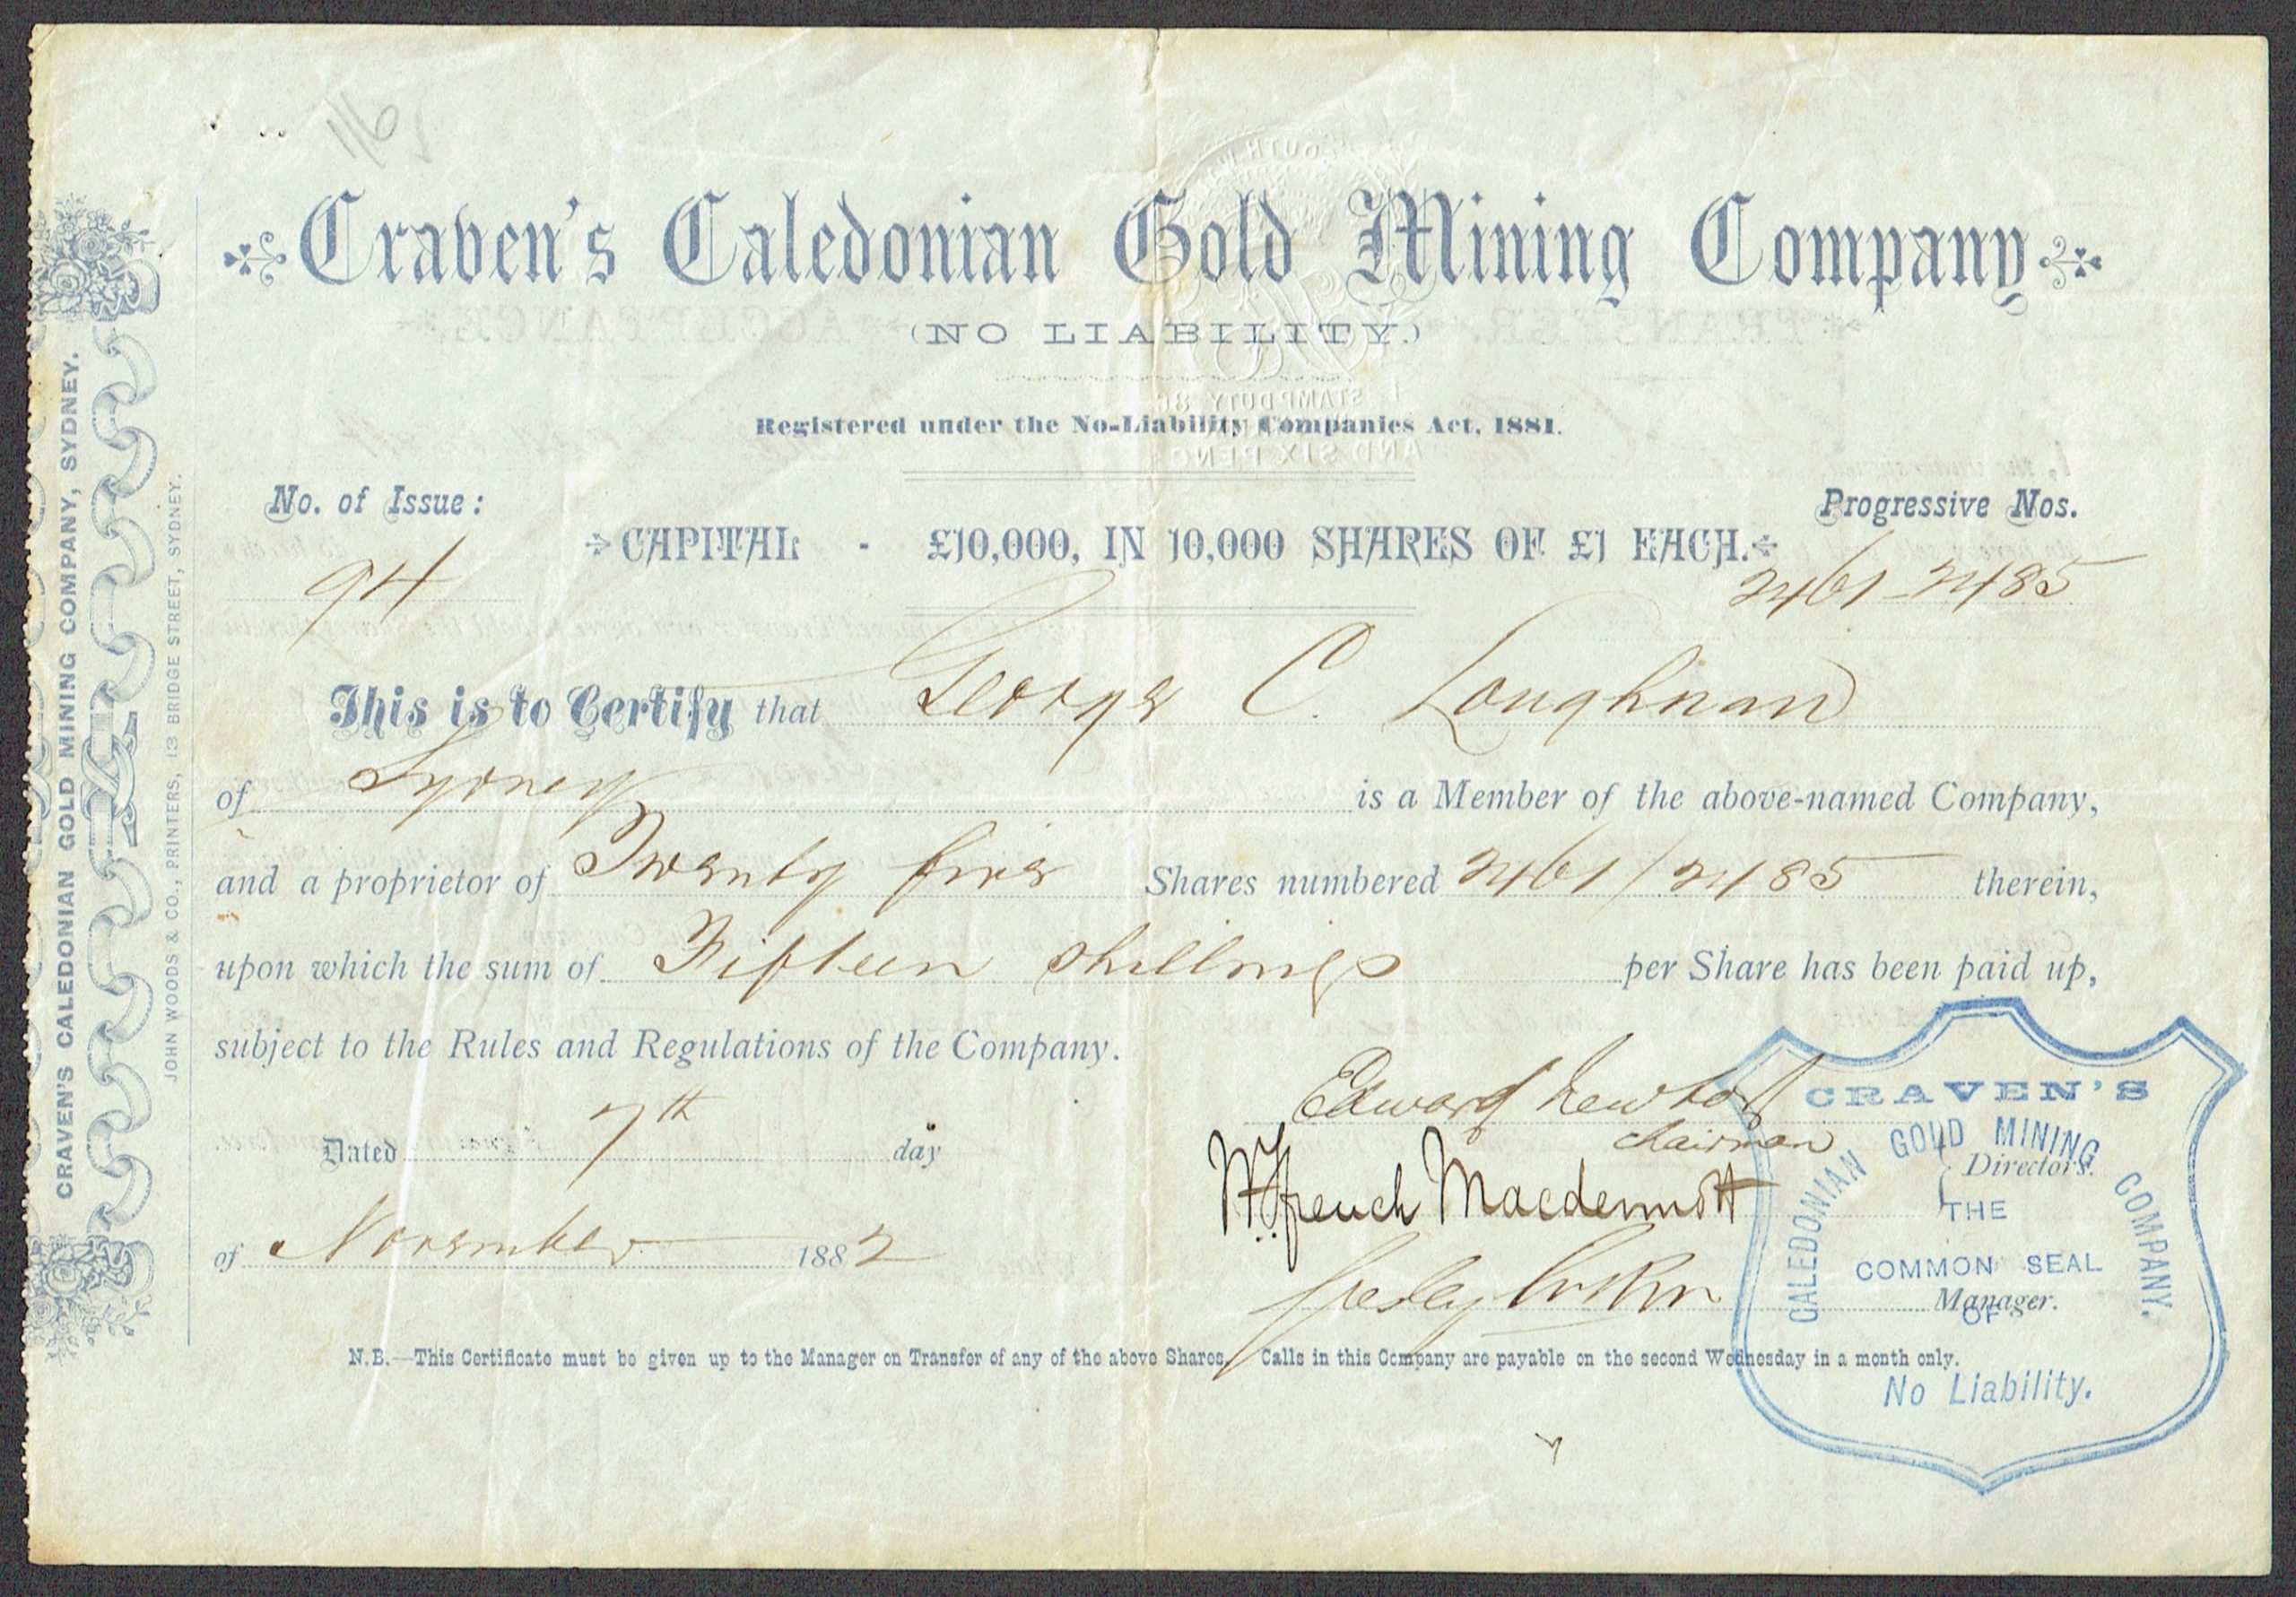 116
Craven's Caledonian Gold Mining Company
(NO LIABILITY.)
Registered under the No-Liability Companies Act, 1881.
No. of Issue:
94
CAPITAL - £10,000, IN 10,000 SHARES OF £1 EACH.
Progressive Nos.
2461-2485
This is to Certify that George C. Loughnan
of Sydney is a Member of the above-named Company,
and a proprietor of Twenty five Shares numbered 2461/2485 therein,
upon which the sum of Fifteen shillings per Share has been paid up,
subject to the Rules and Regulations of the Company.
Dated 7th day
of November 1882
Edward Newton
Chairman
W French Macdermott
Directors.
Manager.
N.B.—This Certificate must be given up to the Manager on Transfer of any of the above Shares. Calls in this Company are payable on the second Wednesday in a month only.
CRAVEN'S
CALEDONIAN GOLD MINING COMPANY.
THE
COMMON SEAL
OF
No Liability.
CRAVEN'S CALEDONIAN GOLD MINING COMPANY, SYDNEY.
JOHN WOODS & CO., PRINTERS, 13 BRIDGE STREET, SYDNEY.
STAMP DUTY
AND SIX PENC